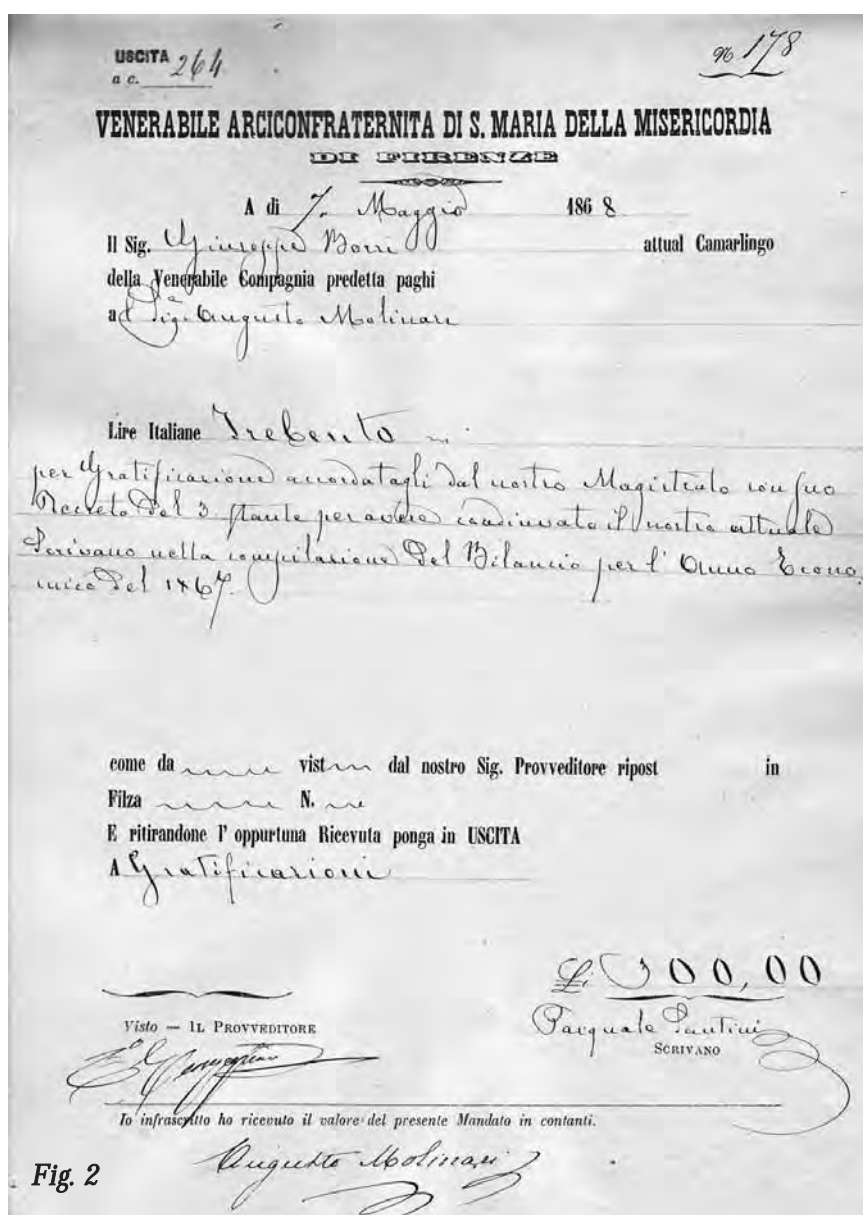 USCITA 264
a c.
N° 178
VENERABILE ARCICONFRATERNITA DI S. MARIA DELLA MISERICORDIA
DI FIRENZE
A dì 7. Maggio 1868
Il Sig. Giuseppe Borri attual Camarlingo
della Venerabile Compagnia predetta paghi
al Sig.e Augusto Molinari
Lire Italiane Trecento
per Gratificazione accordatagli dal nostro Magistrato con suo
Decreto del 3. stante per avere coadiuvato il nostro attuale
Scrivano nella compilazione del Bilancio per l'Anno Econo
mico del 1867.
come da vist dal nostro Sig. Provveditore ripost in
Filza N.
E ritirandone l'oppurtuna Ricevuta ponga in USCITA
A Gratificazioni
L. 300,00
Visto — IL PROVVEDITORE
Pasquale Santini
SCRIVANO
Io infrascritto ho ricevuto il valore del presente Mandato in contanti.
Augusto Molinari
Fig. 2